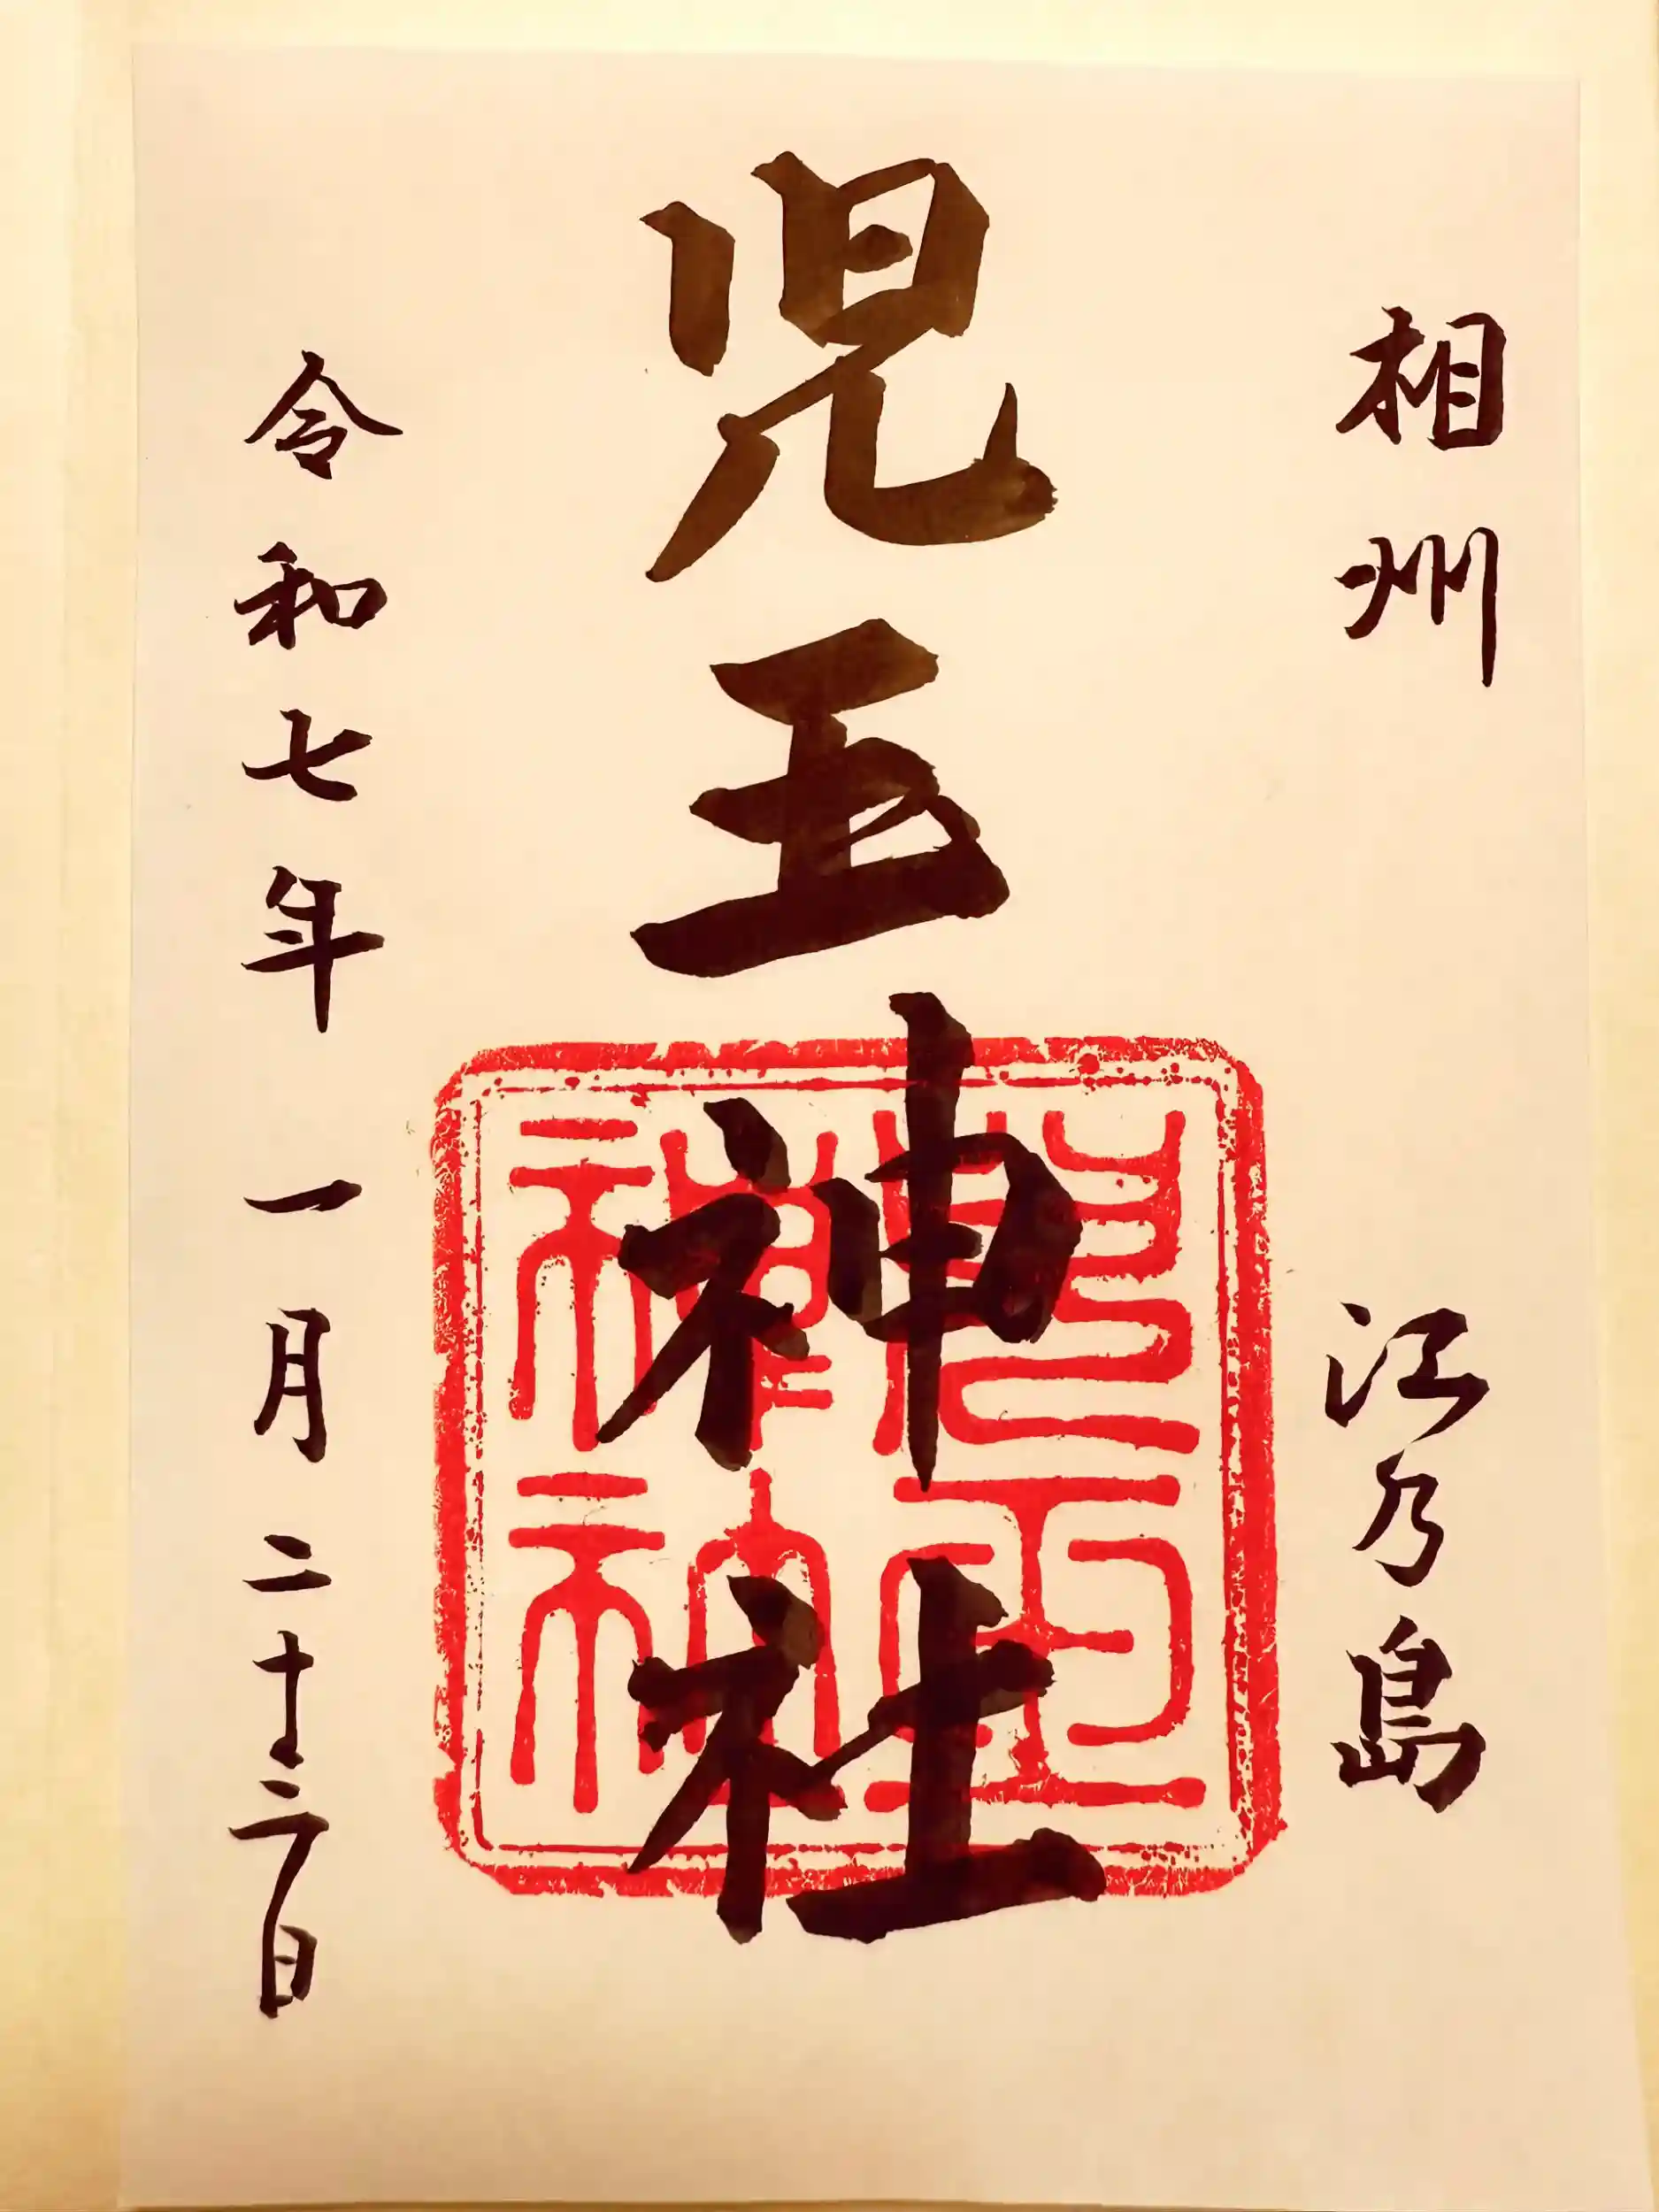 相州 江乃島
兒玉神社
児玉神社
令和七年一月二十三日